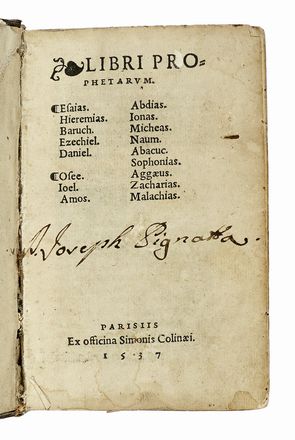 LIBRI PRO-
PHETARVM.
¶Esaias.
Hieremias.
Baruch.
Ezechiel.
Daniel.
¶Osee.
Ioel.
Amos.
Abdias.
Ionas.
Micheas.
Naum.
Abacuc.
Sophonias.
Aggæus.
Zacharias.
Malachias.
Joseph Pignatta.
PARISIIS
Ex officina Simonis Colinæi.
1537